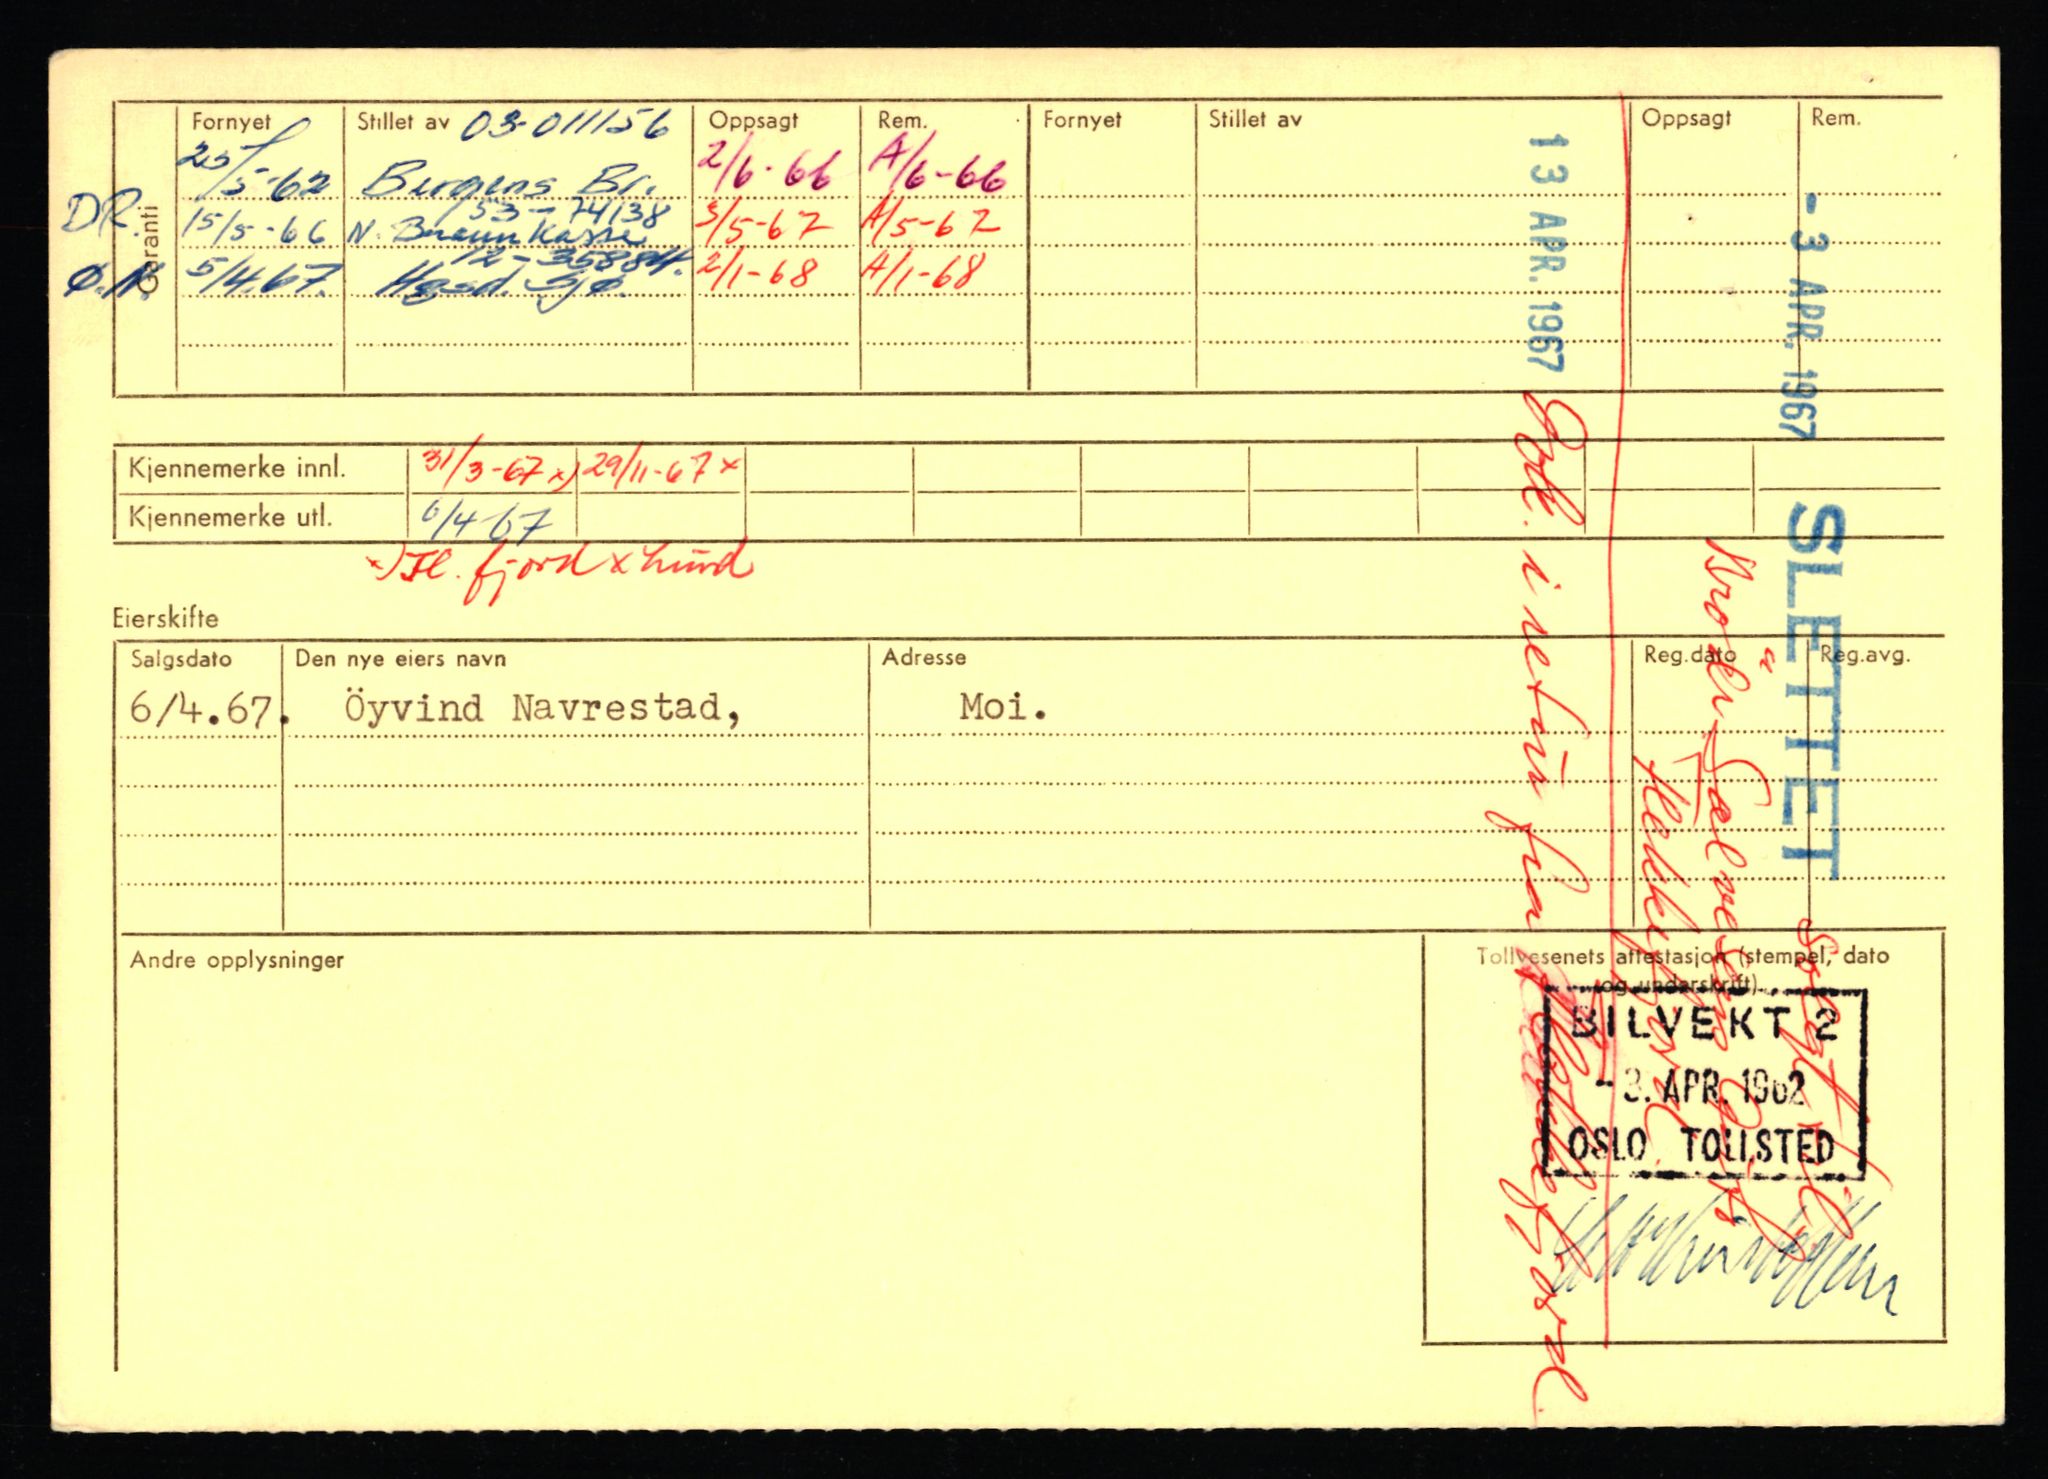 Garanti
Fornyet Stillet av 03-011156 Oppsagt Rem. Fornyet Stillet av Oppsagt Rem.
25/5-62 Bergens Br. 2/6-66 A/6-66
53-74138
DR. 15/5-66 N. Brannkasse 3/5-67 A/5-67
12-35884.
Ø.N. 5/4.67. Hgsd. Sjø. 2/1-68 A/1-68
Kjennemerke innl. 31/3-67 x) 29/11-67 x
Kjennemerke utl. 6/4-67
x) Fl. fjord x Lund
Eierskifte
Salgsdato Den nye eiers navn Adresse Reg.dato Reg.avg.
6/4.67. Öyvind Navrestad, Moi.
Andre opplysninger
Tollvesenets attestasjon (stempel, dato
og underskrift)
BILVEKT 2
-3. APR. 1962
OSLO TOLLSTED
13 APR. 1967
Godk. i retur fra Flekkefjord.
-3 APR. 1967
SLETTET
solgt til
Flekkefjord